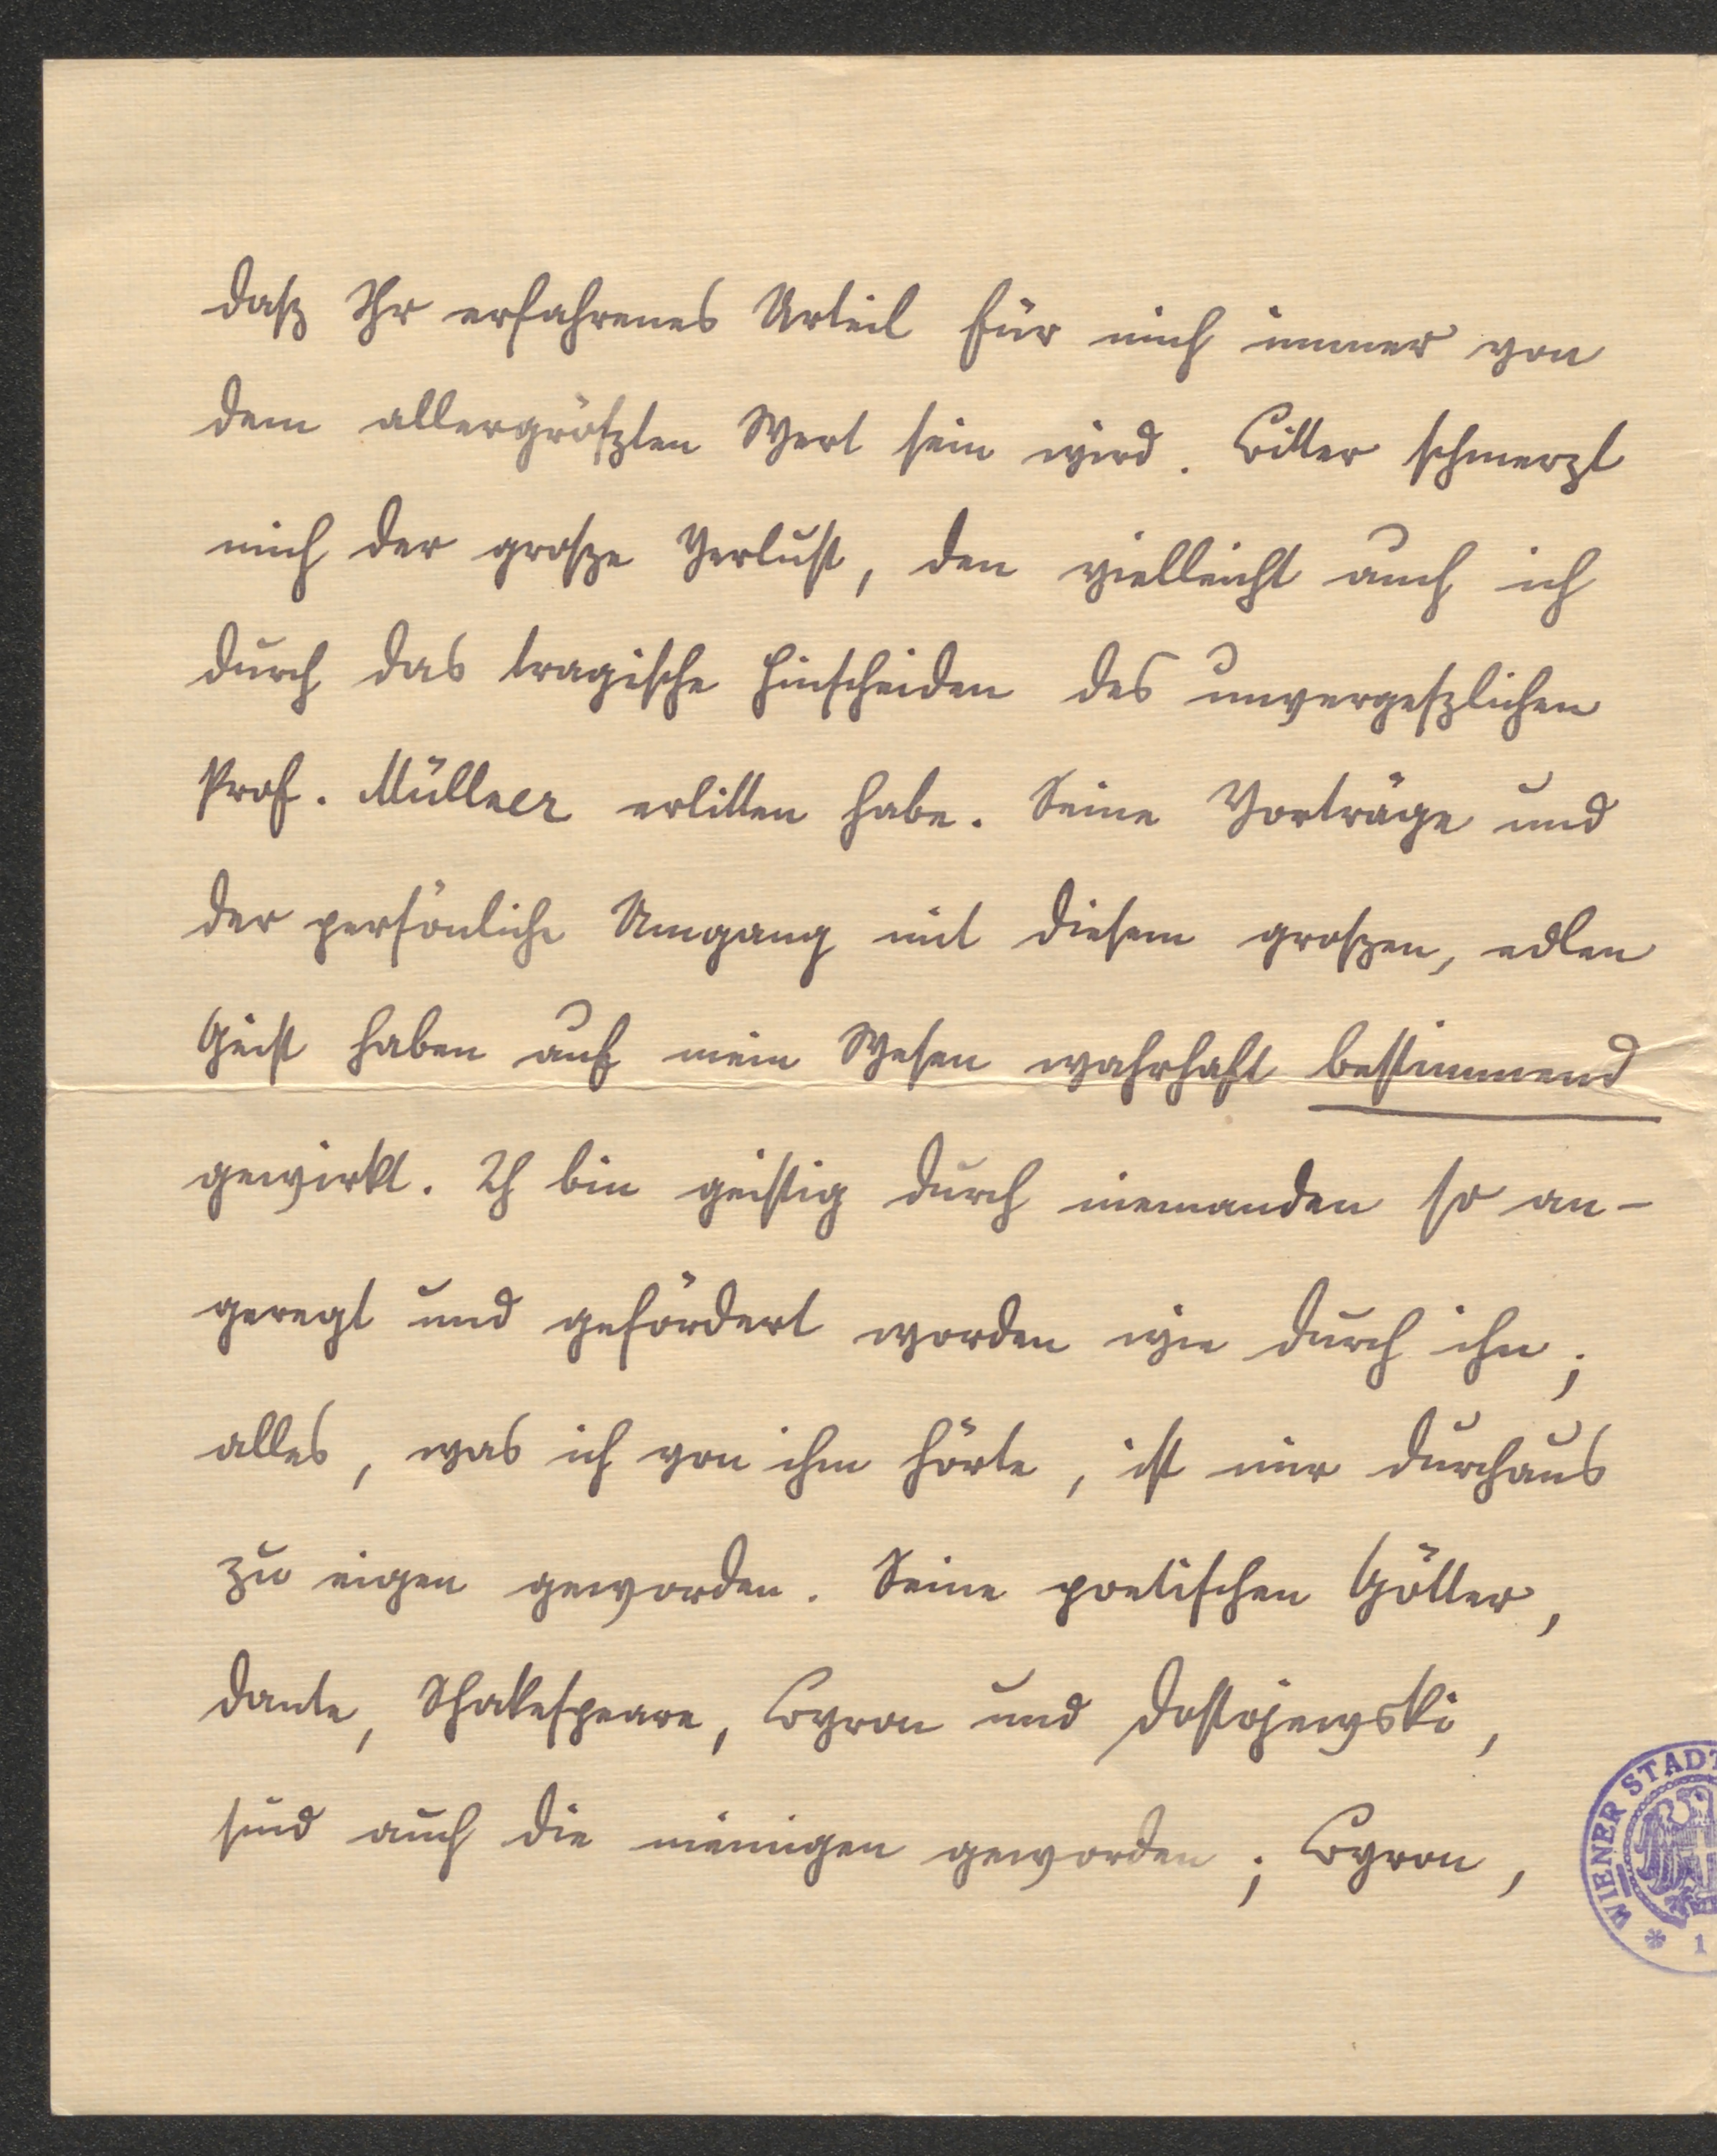 daß Ihr erfahrenes Urteil für mich immer von
dem allergrößten Wert sein wird. Bitter schmerzt
mich der große Verlust, den vielleicht auch ich
durch das tragische Hinscheiden des unvergeßlichen
Prof. Müllner erlitten habe. Seine Vorträge und
der persönliche Umgang mit diesem großen, edlen
Geist haben auf mein Wesen wahrhaft bestimmend
gewirkt. Ich bin geistig durch niemanden so an-
geregt und gefördert worden wie durch ihn;
alles, was ich von ihm hörte, ist mir durchaus
zu eigen geworden. Seine poetischen Götter,
Dante, Shakespeare, Byron und Dostojewski,
sind auch die meinigen geworden; Byron,
WIENER STADT
* 1